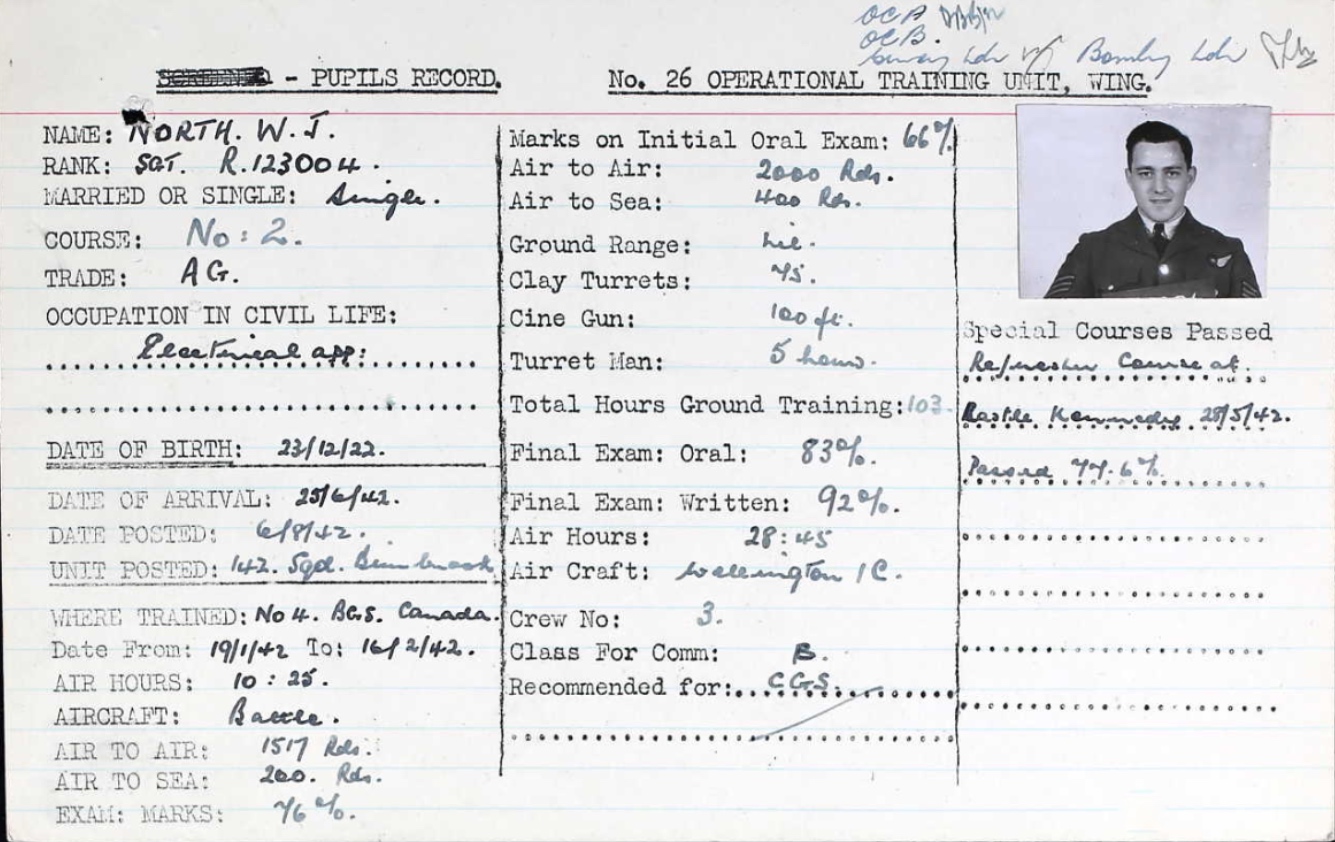 OCA
OCB.
Bombing Ldr
- PUPILS RECORD. No. 26 OPERATIONAL TRAINING UNIT, WING.
NAME: NORTH. W. J.
RANK: SGT. R.123004.
MARRIED OR SINGLE: Single.
COURSE: No: 2.
TRADE: AG.
OCCUPATION IN CIVIL LIFE:
Electrical app:
DATE OF BIRTH: 23/12/22.
DATE OF ARRIVAL: 25/6/42.
DATE POSTED: 6/8/42.
UNIT POSTED: 142. Sqd.
WHERE TRAINED: No 4. BGS. Canada.
Date From: 19/1/42 To: 16/2/42.
AIR HOURS: 10:25.
AIRCRAFT: Battle.
AIR TO AIR: 1517 Rds.
AIR TO SEA: 200. Rds.
EXAM: MARKS: 76%.
Marks on Initial Oral Exam: 66%.
Air to Air: 2000 Rds.
Air to Sea: 400 Rds.
Ground Range: nil.
Clay Turrets: 75.
Cine Gun: 100 ft.
Turret Man: 5 hours.
Total Hours Ground Training: 103.
Final Exam: Oral: 83%.
Final Exam: Written: 92%.
Air Hours: 28:45
Air Craft: Wellington IC.
Crew No: 3.
Class For Comm: B.
Recommended for: CGS.
Special Courses Passed
Refresher Course at.
Castle Kennedy 28/5/42.
Passed 77.6%.